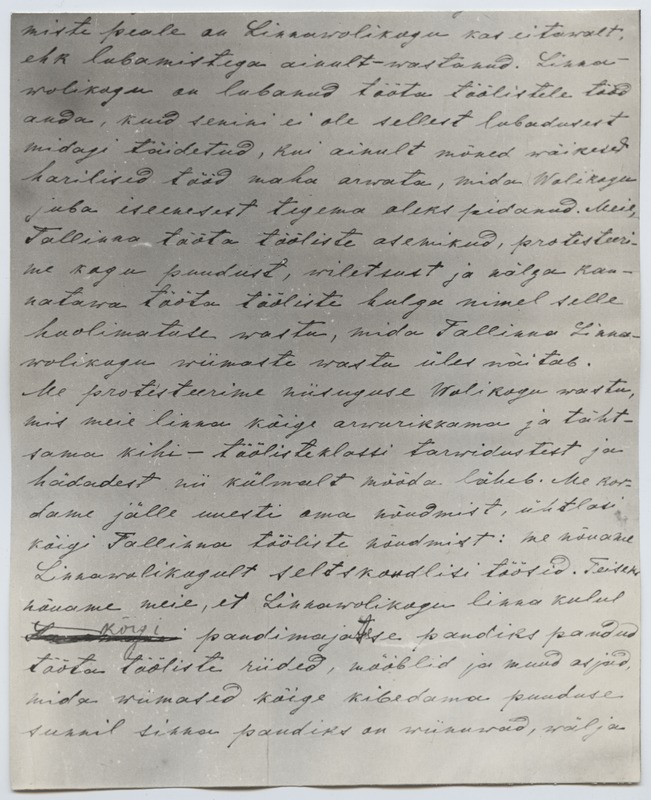 miste peale on Linnawolikogu kas eitawalt,
ehk lubamistega ainult-wastanud. Linna-
wolikogu on lubanud tööta töölistele tööd
anda, kuid senini ei ole sellest lubadusest
midagi täidetud, kui ainult mõned wäikesed
harilised tööd maha arwata, mida Wolikogu
juba iseenesest tegema oleks pidanud. Meie,
Tallinna tööta tööliste asemikud, protesteeri-
me kogu puudust, wiletsust ja nälga kan-
natawa tööta tööliste hulga nimel selle
hoolimatuse wastu, mida Tallinna Linna-
wolikogu wiimaste wastu üles näitab.
Me protesteerime niisuguse Wolikogu wastu,
mis meie linna kõige arwurikkama ja täht-
sama kihi - töölisteklassi tarwidustest ja
hädadest nii külmalt mööda läheb. Me kor-
dame jälle uuesti oma nõudmist, ühtlasi
kõigi Tallinna tööliste nõudmist: me nõuame
Linnawolikogult seltskondlisi töösid. Teiseks
nõuame meie, et Linnawolikogu linna kulul
kõigi pandimajatesse pandiks pandud
tööta tööliste riided, mööblid ja muud asjad,
mida wiimased kõige kibedama puuduse
sunnil sinna pandiks on wiinuwad, wälja